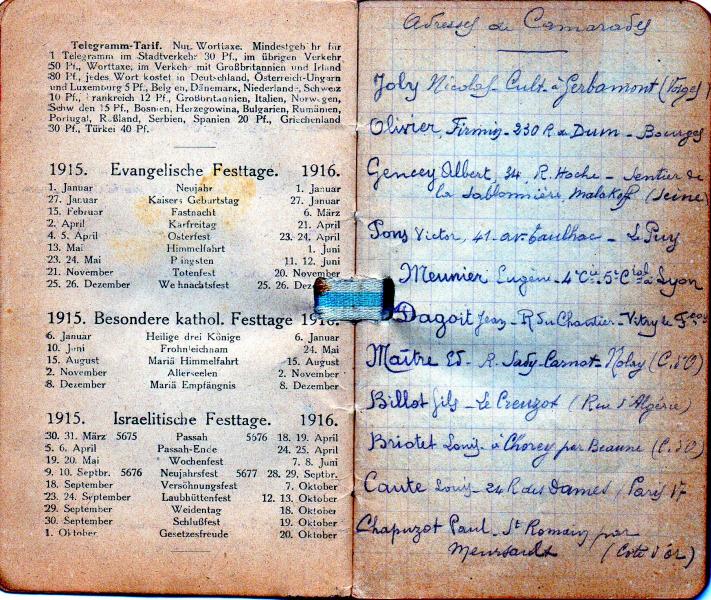 Telegramm-Tarif. Nur Worttaxe. Mindestgebühr für
1 Telegramm im Stadtverkehr 30 Pf., im übrigen Verkehr
50 Pf., Worttaxe, im Verkehr mit Großbritannien und Irland
80 Pf., jedes Wort kostet in Deutschland, Österreich-Ungarn
und Luxemburg 5 Pf., Belgien, Dänemark, Niederlande, Schweiz
10 Pf., Frankreich 12 Pf., Großbritannien, Italien, Norwegen,
Schweden 15 Pf., Bosnien, Herzegowina, Bulgarien, Rumänien,
Portugal, Rußland, Serbien, Spanien 20 Pf., Griechenland
30 Pf., Türkei 40 Pf.
1915. Evangelische Festtage. 1916.
1. Januar Neujahr 1. Januar
27. Januar Kaisers Geburtstag 27. Januar
15. Februar Fastnacht 6. März
2. April Karfreitag 21. April
4. 5. April Osterfest 23. 24. April
13. Mai Himmelfahrt 1. Juni
23. 24. Mai Pfingsten 11. 12. Juni
21. November Totenfest 20. November
25. 26. Dezember Weihnachtsfest 25. 26. De
1915. Besondere kathol. Festtage 1916.
6. Januar Heilige drei Könige 6. Januar
10. Juni Frohnleichnam 24. Mai
15. August Mariä Himmelfahrt 15. August
2. November Allerseelen 2. November
8. Dezember Mariä Empfängnis 8. Dezember
1915. Israelitische Festtage. 1916.
30. 31. März 5675 Passah 5676 18. 19. April
5. 6. April Passah-Ende 24. 25. April
19. 20. Mai Wochenfest 7. 8. Juni
9. 10. Septbr. 5676 Neujahrsfest 5677 28. 29. Septbr.
18. September Versöhnungsfest 7. Oktober
23. 24. September Laubhüttenfest 12. 13. Oktober
29. September Weidentag 18. Oktober
30. September Schlußfest 19. Oktober
1. Oktober Gesetzesfreude 20. Oktober
Adresses de Camarades
Joly Nicolas - Cult. à Gerbamont (Vosges)
Olivier, Firmin - 230 R. de Dun - Bourges
Gencey Albert, 34, R. Hoche - Sentier de
la Sablonnière, Malakoff (Seine)
Pons Victor, 41 - av. - Le Puy
Meunier Eugène - 4e Cie 5e Cial à Lyon
Dagoit Jean - R. du Chantier - Vitry le Fçois
Maître Ed. R. Sadi-Carnot - Nolay (C. d'O)
Billot fils - Le Creuzot (Rue d'Algérie)
Briotet Louis - à Chorey par Beaune (C. d'O)
Caute Louis - 24 R des Dames, Paris 17
Chapuzot Paul - St Romain par
Meursault (Côte d'or)